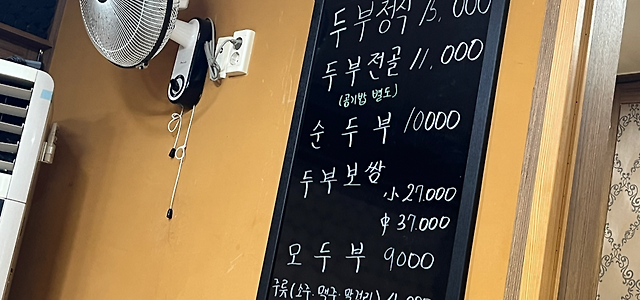 두부정식 15,000
두부전골 11,000
(공기밥 별도)
순두부 10000
두부보쌈
小 27.000
中 37.000
모두부 9000
구룻(소주.맥주.막걸리)